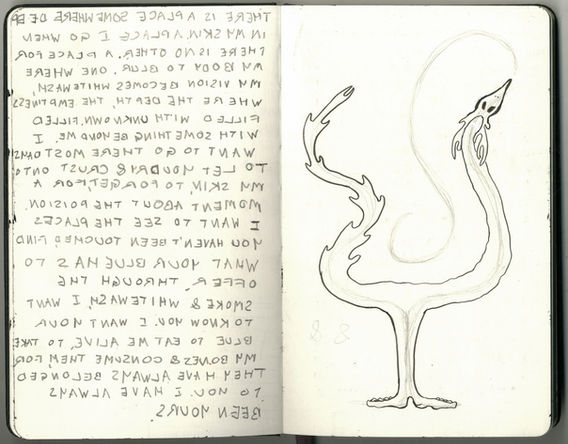 THERE IS A PLACE SOMEWHERE DEEP
IN MY SKIN, A PLACE I GO WHEN
THERE IS NO OTHER. A PLACE FOR
MY BODY TO BLUR. ONE WHERE
MY VISION BECOMES WHITEWASH,
WHERE THE DEPTH, THE EMPTINESS
FILLED WITH UNKNOWN, FILLED
WITH SOMETHING BEYOND ME. I
WANT TO GO THERE MOST DAYS
TO LET YOU DRY & CRUST ONTO
MY SKIN, TO FORGET FOR A
MOMENT ABOUT THE POISION.
I WANT TO SEE THE PLACES
YOU HAVEN'T BEEN TOUCHED, FIND
WHAT YOUR BLUE HAS TO
OFFER. THROUGH THE
SMOKE & WHITEWASH, I WANT
TO KNOW YOU. I WANT YOUR
BLUE TO EAT ME ALIVE, TO TAKE
MY BONES & CONSUME THEM, FOR
THEY HAVE ALWAYS BELONGED
TO YOU. I HAVE ALWAYS
BEEN YOURS.
& &